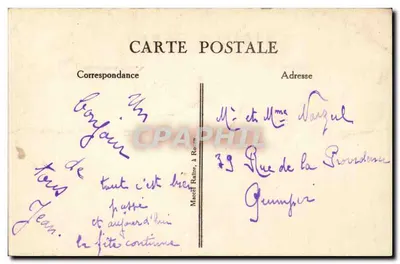 CARTE POSTALE
Correspondance
Adresse
Un
bonjour
de
tous
Jean
tout c'est bien
passé
et aujourd'hui
la fête continue
Mr et Mme
79 Rue de la Providence
Quimper